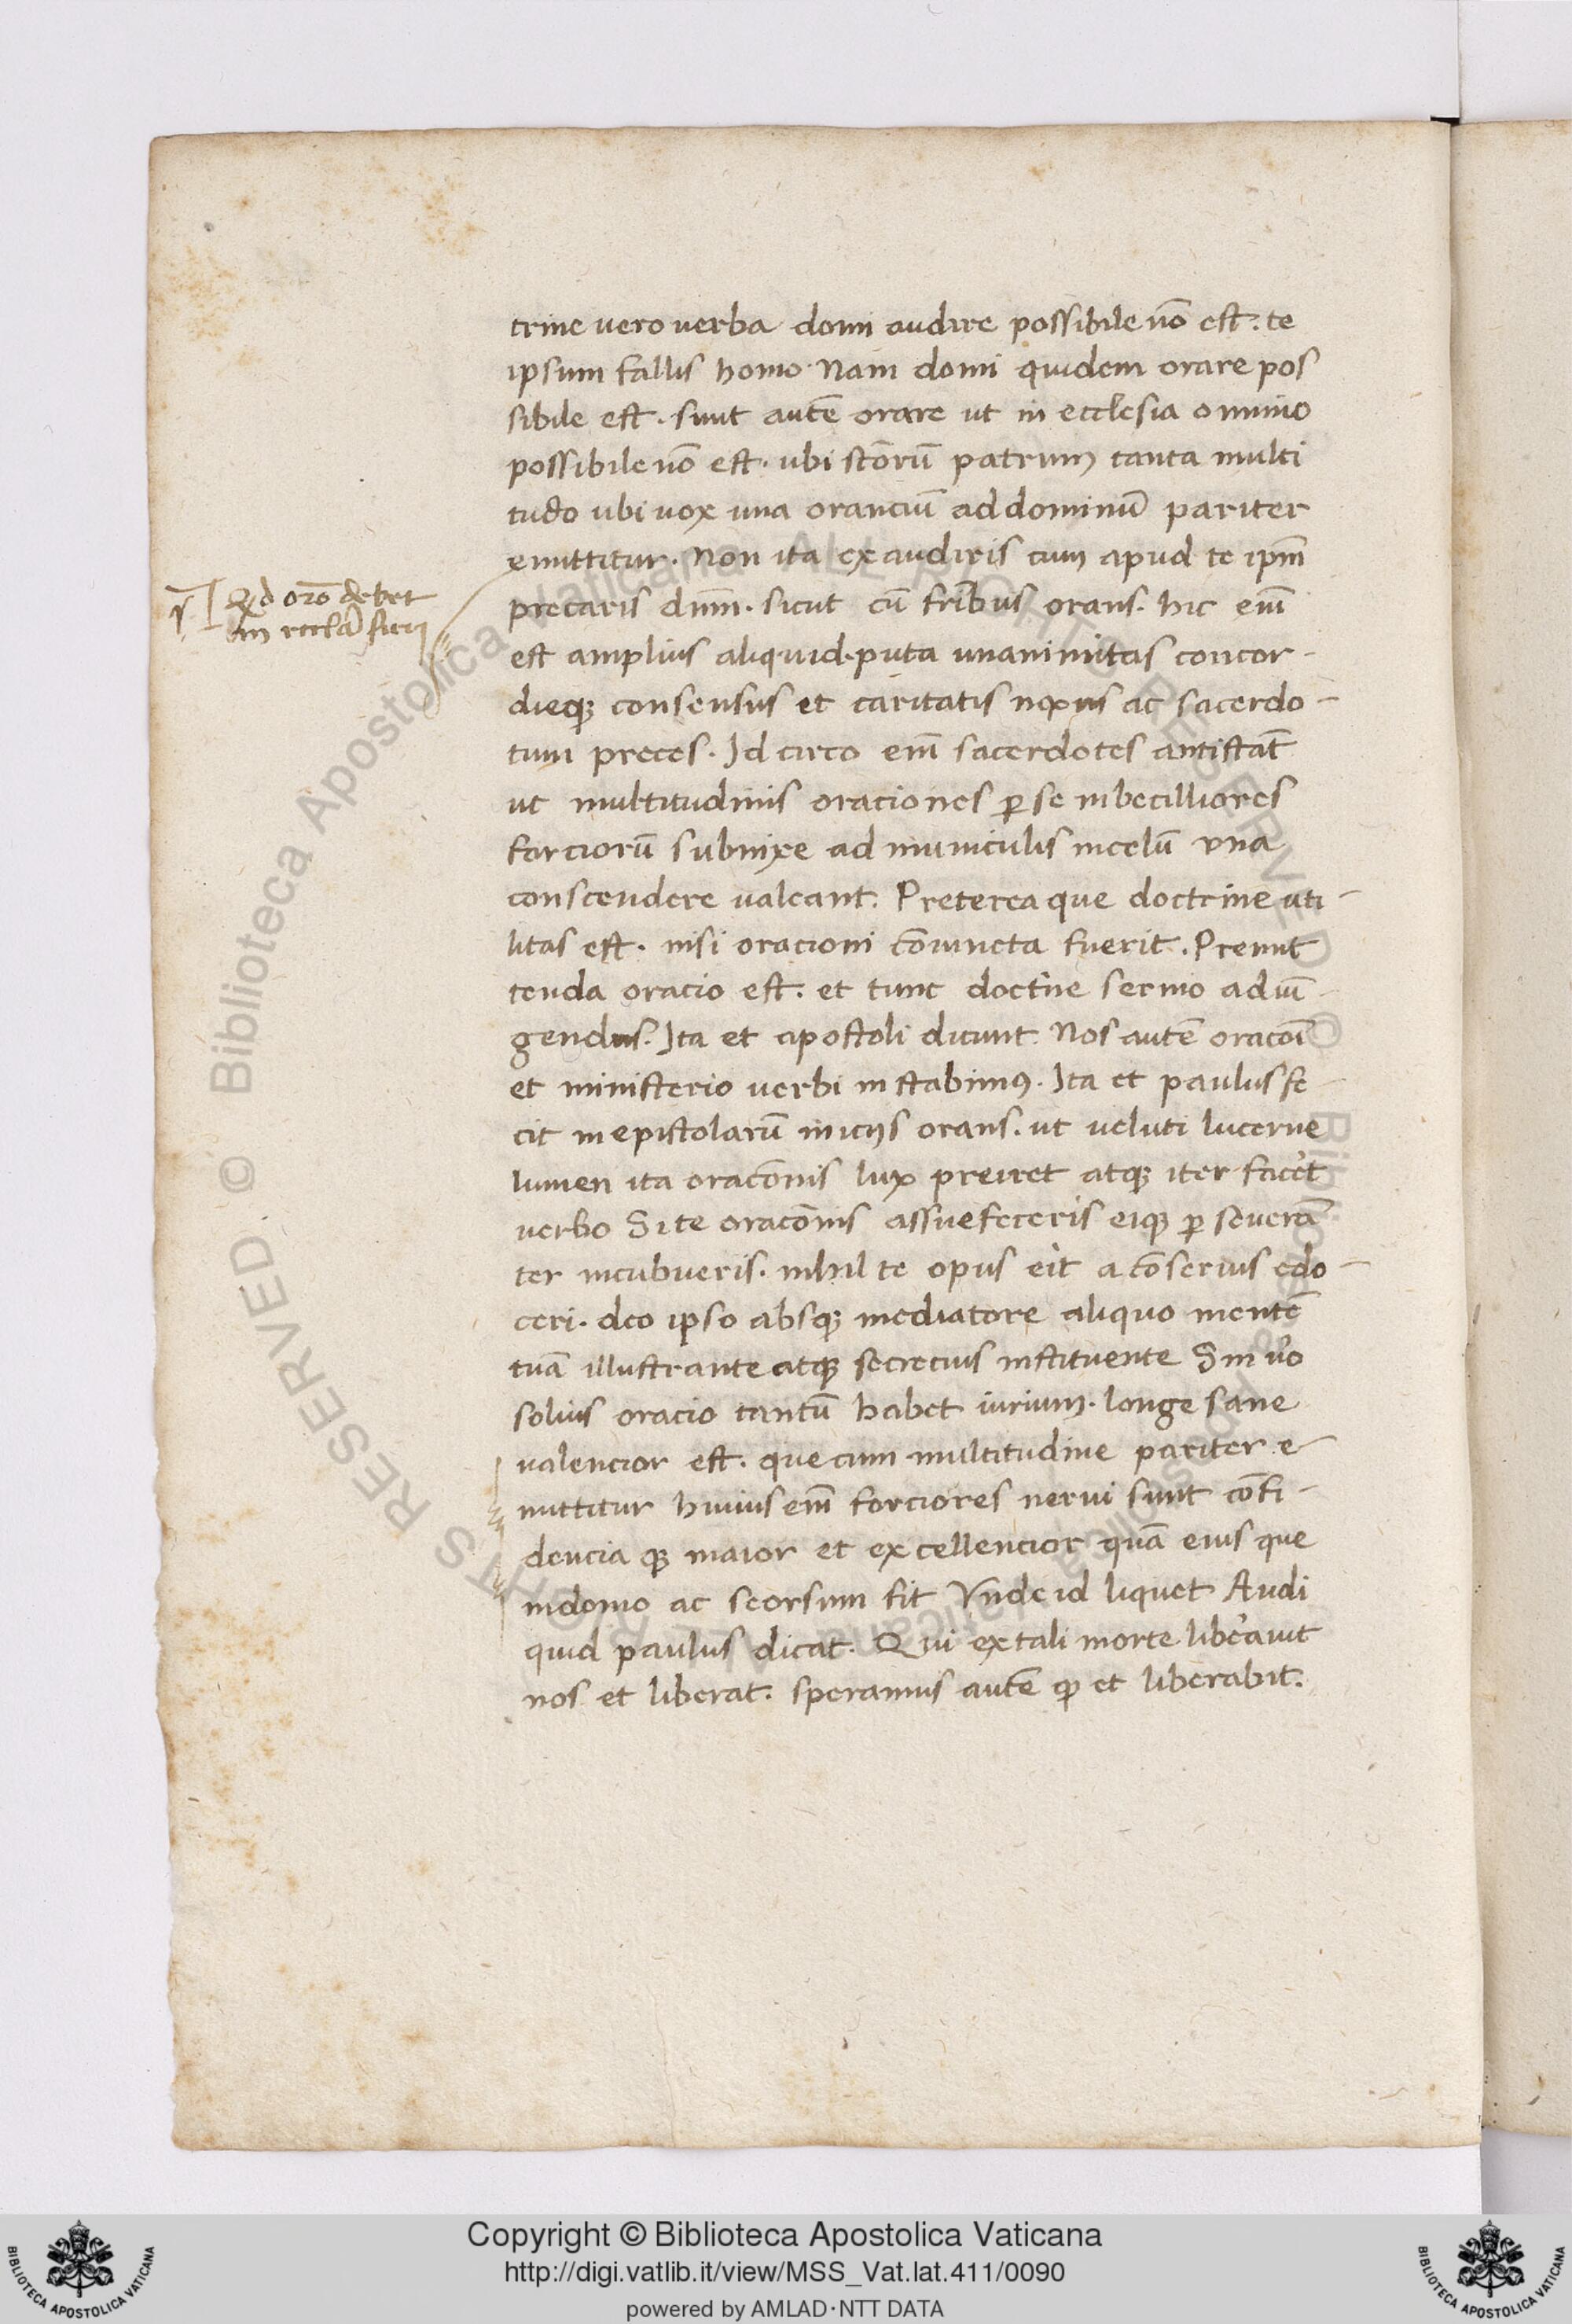 trine vero verba domi audire possibile nõ est. te
ipsum fallis homo. Nam domi quidem orare pos
sibile est. sunt autẽ orare ut in ecclesia omnino
possibile nõ est. ubi sctõrũ patrum tanta multi
tudo ubi vox una oranciũ ad dominũ pariter
emittitur. Non ita exaudiris cum apud te ipm̃
precaris dnm̃. sicut cũ fribus orans. hic enĩ
est amplius aliquid. puta unanimitas concor-
dieqꝫ consensus et caritatis nexus ac sacerdo-
tum preces. Idcirco enĩ sacerdotes antistãt
ut multitudinis oraciones ꝑ se inbecilliores
forciorũ subnixe adminiculis in celũ una
conscendere valeant. Preterea que doctrine uti-
litas est. nisi oracioni cõiuncta fuerit. Premit
tenda oracio est. et tunc doctͥne sermo adiũ-
gendus. Ita et apostoli dicunt. Nos autẽ oracõi
et ministerio verbi instabimꝰ. Ita et paulus fe-
cit in epistolarũ iniciis orans. ut veluti lucerne
lumen ita oracõnis lux preiret atqꝫ iter facet
verbo Si te oracõnis assuefeceris eiqꝫ ꝑseverã
ter incubueris. nihil te opus eit a cõservus edo-
ceri. deo ipso absqꝫ mediatore aliquo mentẽ
tuã illustrante atqꝫ secrecius instituente Sin vo
solius oracio tantũ habet virium. longe sane
valencior est. que cum multitudine pariter e-
mittitur huius enĩ forciores nervi sunt cõfi-
dencia qꝫ maior et excellencior quã eius que
in domo ac seorsum fit Unde id liquet Audi
quid paulus dicat. Qui ex tali morte liberavit
nos et liberat. speramus autẽ ꝙ et liberabit.
Qd orõ debet
in eccla fieri
© Biblioteca Apostolica Vaticana ALL RIGHTS RESERVED
Copyright © Biblioteca Apostolica Vaticana
http://digi.vatlib.it/view/MSS_Vat.lat.411/0090
powered by AMLAD·NTT DATA
BIBLIOTECA APOSTOLICA VATICANA
BIBLIOTECA APOSTOLICA VATICANA